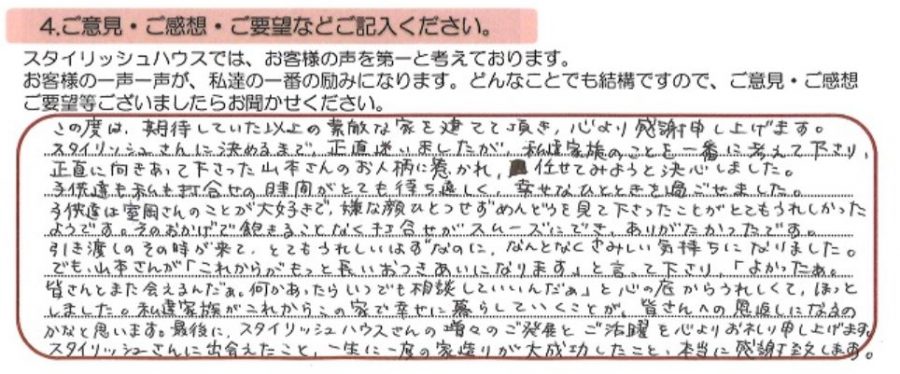 4.ご意見・ご感想・ご要望などご記入ください。
スタイリッシュハウスでは、お客様の声を第一と考えております。
お客様の一声一声が、私達の一番の励みになります。どんなことでも結構ですので、ご意見・ご感想
ご要望等ございましたらお聞かせください。
この度は、期待していた以上の素敵な家を建てて頂き、心より感謝申し上げます。
スタイリッシュさんに決めるまで、正直迷いましたが、私達家族のことを一番に考えて下さり、
正直に向きあって下さった山本さんのお人柄に惹かれ、任せてみようと決心しました。
子供達も私も打合せの時間がとても待ち遠しく、幸せなひとときを過ごせました。
子供達は室岡さんのことが大好きで、嫌な顔ひとつせずめんどうを見て下さったことがとてもうれしかった
ようです。そのおかげで飽きることなく打合せがスムーズにでき、ありがたかったです。
引き渡しのその時が来て、とてもうれしいはずなのに、なんとなくさみしい気持ちになりました。
でも、山本さんが「これからがもっと長いおつきあいになります」と言って下さり、「よかったぁ。
皆さんとまた会えるんだぁ。何かあったらいつでも相談していいんだぁ」と心の底からうれしくて、ほっと
しました。私達家族がこれからこの家で幸せに暮らしていくことが、皆さんへの恩返しになるの
かなと思います。最後に、スタイリッシュハウスさんの増々のご発展とご活躍を心よりお祈り申し上げます。
スタイリッシュさんに出会えたこと、一生に一度の家造りが大成功したこと、本当に感謝致します。